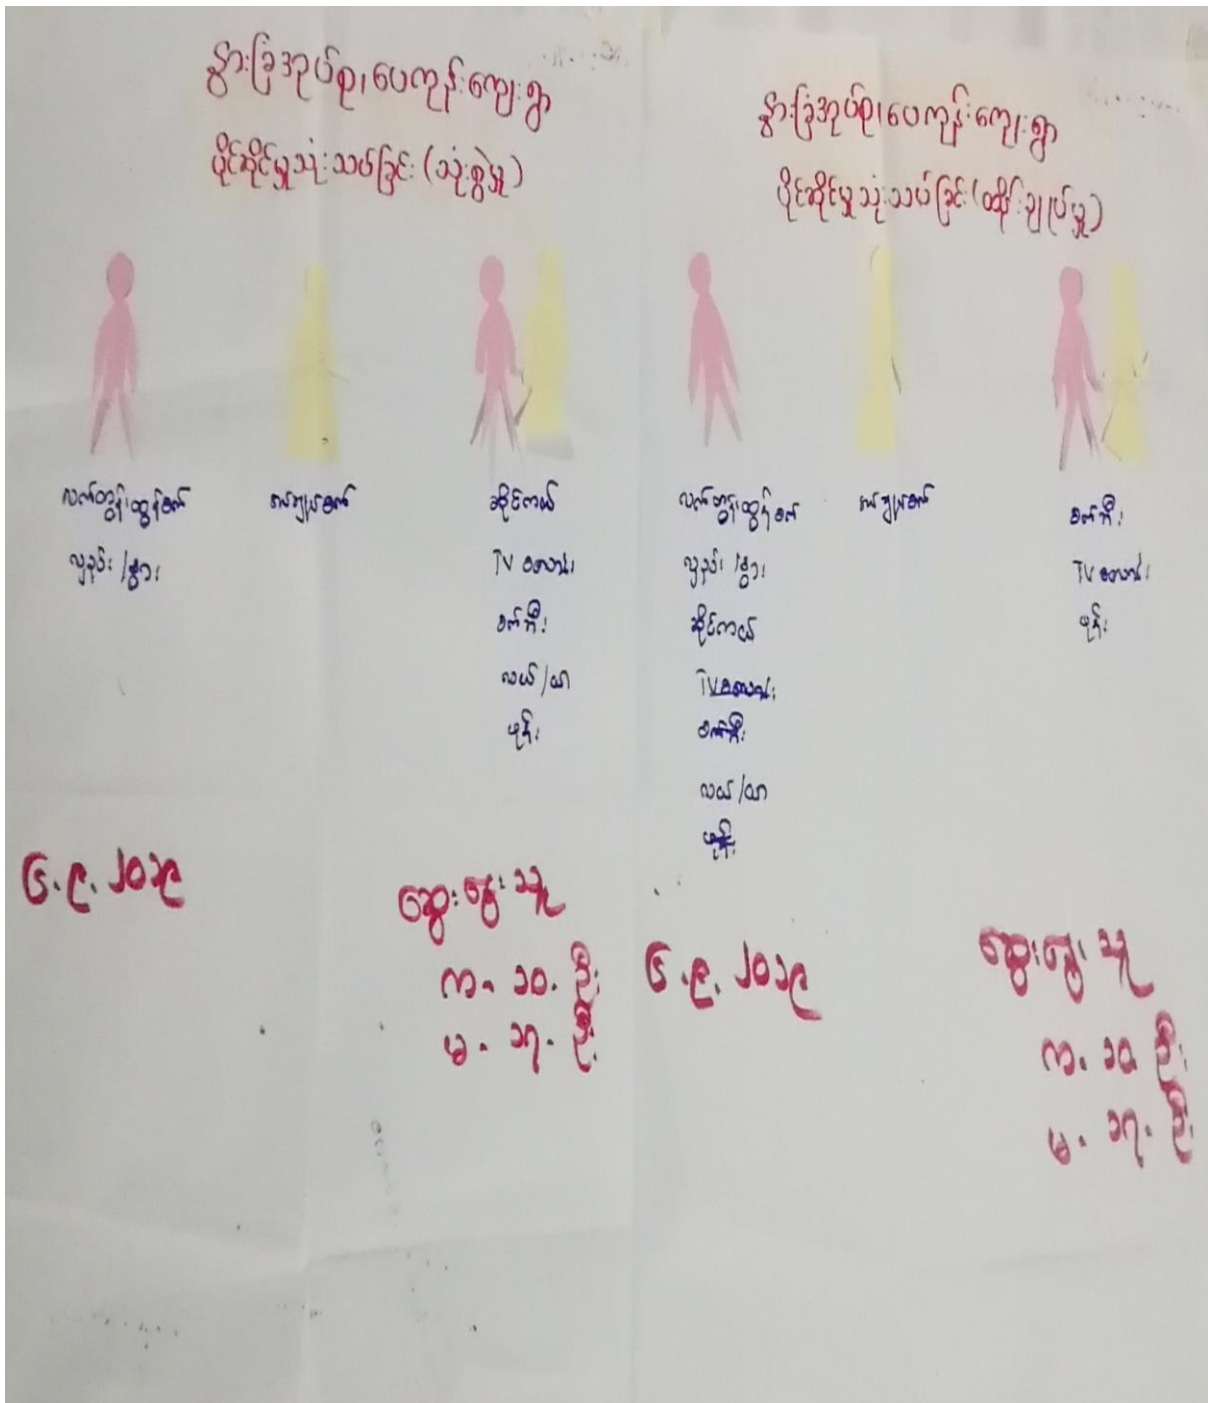 နွားခြံအုပ်စု၊ ပေကုန်းကျေးရွာ
ပိုင်ဆိုင်မှုသုံးသပ်ခြင်း (သုံးစွဲမှု)
လက်တွန်းထွန်စက်
လှည်း /နွား
ဆိုင်ကယ်
TV စလောင်း
စက်ဘီး
လယ် /ယာ
ဖုန်း
၆.၉. ၂၀၁၉
ဆွေးနွေးသူ
ကျ. ၁၀. ဦး
မ. ၁၇. ဦး
နွားခြံအုပ်စု၊ ပေကုန်းကျေးရွာ
ပိုင်ဆိုင်မှုသုံးသပ်ခြင်း (ထိန်းချုပ်မှု)
လက်တွန်းထွန်စက်
လှည်း /နွား
ဆိုင်ကယ်
TV စလောင်း
စက်ဘီး
လယ် /ယာ
ဖုန်း
စက်ဘီး
TV စလောင်း
ဖုန်း
၆.၉. ၂၀၁၉
ဆွေးနွေးသူ
ကျ. ၁၀ ဦး
မ. ၁၇. ဦး